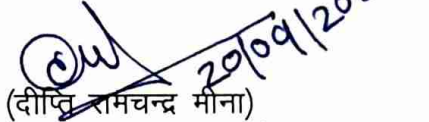 20/09/20
(दीप्ति रामचन्द्र मीना)